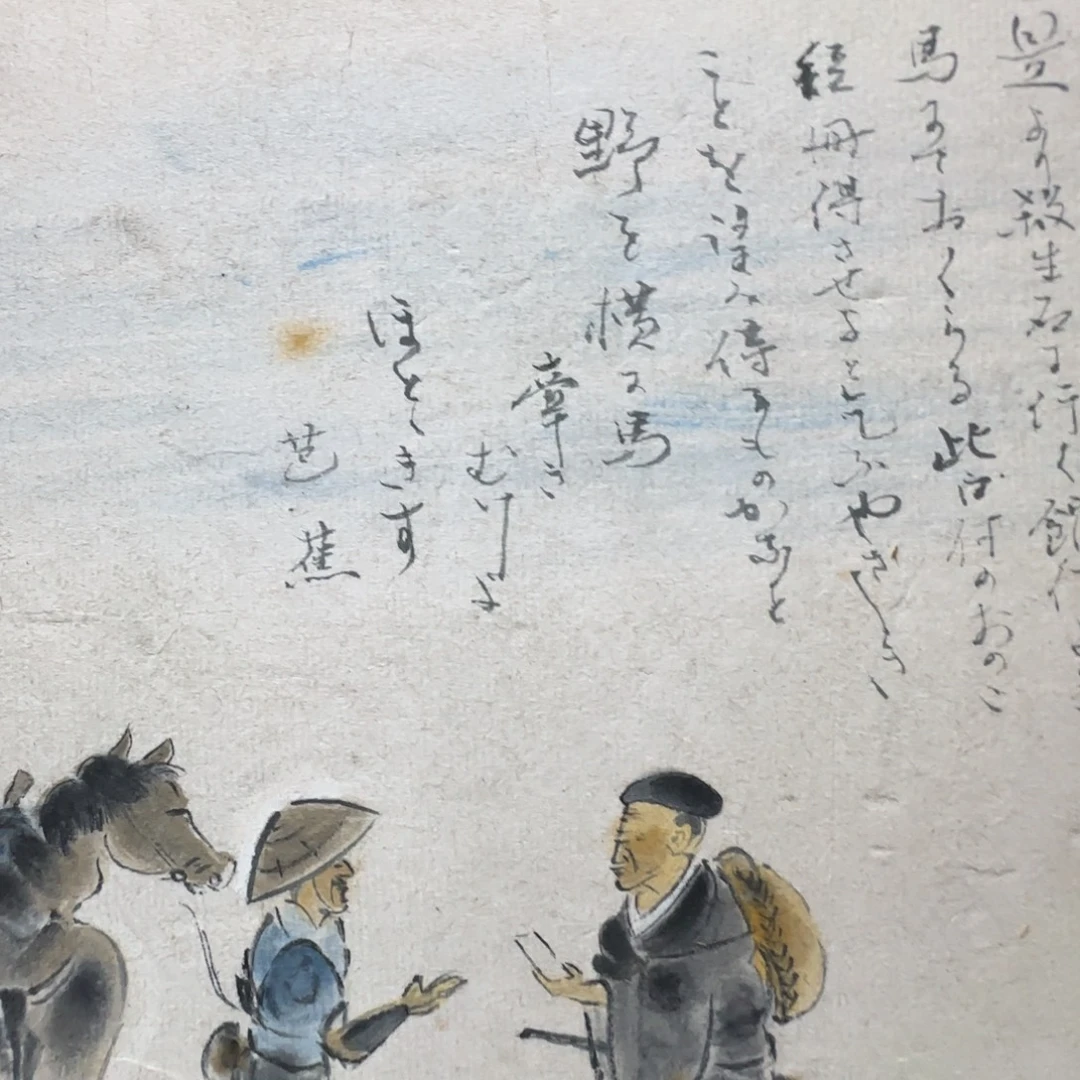 是より殺生石に行く館代
馬にておくらる此口付のおのこ
短冊得させよとこふやさしき
ことを望み侍るものかなと
野を横に馬
牽き
むけよ
ほとゝきす
芭蕉